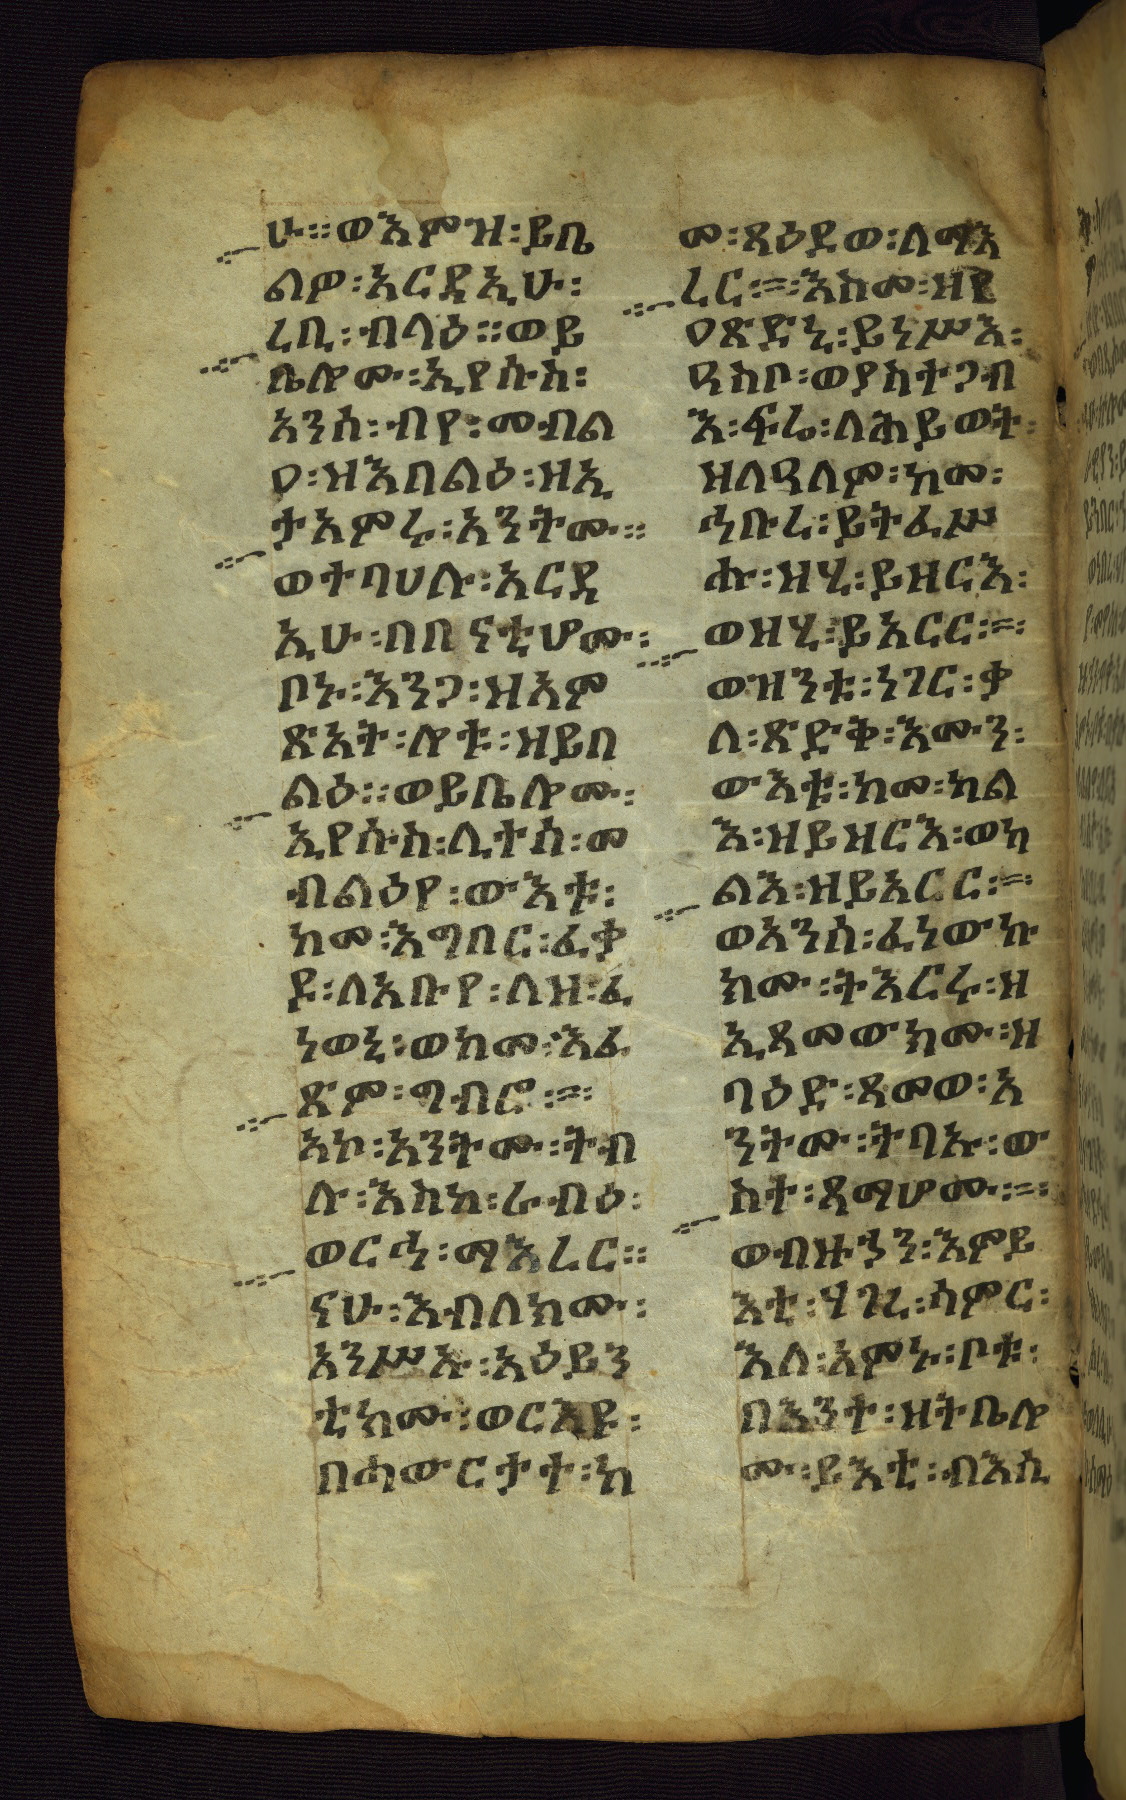 ሁ። ወእምዝ፡ ይቤ
ልዎ፡ አርዳኢሁ፡
ረቢ፡ ብላዕ። ወይ
ቤሎሙ፡ ኢየሱስ፡
አንሰ፡ ብየ፡ መብል
ዐ፡ ዝእበልዕ፡ ዘኢ
ታአምሩ፡ አንትሙ።
ወተባሀሉ፡ አርዳ
ኢሁ፡ በበይናቲሆሙ፡
ቦኑ፡ እንጋ፡ ዝአም
ጽአት፡ ሎቱ፡ ዘይበ
ልዕ። ወይቤሎሙ፡
ኢየሱስ፡ ሊተሰ፡ መ
ብልዕየ፡ ውእቱ፡
ከመ፡ እግበር፡ ፈቃ
ዶ፡ ለአቡየ፡ ለዝ፡ ፈ
ነወኒ፡ ወከመ፡ እፈ
ጽም፡ ግብሮ፡=፡
አኮ፡ አንትሙ፡ ትብ
ሉ፡ እስከ፡ ራብዕ፡
ወርኅ፡ ማእረር።
ናሁ፡ እብለክሙ፡
አንሥኡ፡ አዕይን
ቲክሙ፡ ወርእዩ፡
በሐውርታተ፡ ከ
መ፡ ጻዕደወ፡ ለማእ
ረር፡=፡ እስመ፡ ዘየ
ዐጽድኒ፡ ይነሥእ፡
ዓስቦ፡ ወያስተጋብ
እ፡ ፍሬ፡ ለሕይወት፡
ዝለዓለም፡ ከመ፡
ኅቡረ፡ ይትፌሥ
ሑ፡ ዝሂ፡ ይዘርእ፡
ወዝሂ፡ ይአርር፡=፡
ወዝንቱ፡ ነገር፡ ቃ
ለ፡ ጽድቅ፡ እሙን፡
ውእቱ፡ ከመ፡ ካል
እ፡ ዝይዝርእ፡ ወካ
ልእ፡ ዘይአርር፡=፡
ወአንሰ፡ ፈነውኩ
ክሙ፡ ትእርሩ፡ ዘ
ኢጻመውክሙ፡ ዘ
ባዕድ፡ ጻመወ፡ አ
ንትሙ፡ ትባኡ፡ ው
ስተ፡ ጻማሆሙ፡=፡
ወብዙኃን፡ እምይ
እቲ፡ ሃገረ፡ ሳምር፡
እለ፡ አምኑ፡ ቦቱ፡
በእንተ፡ ዝትቤሎ
ሙ፡ ይእቲ፡ ብእሲ